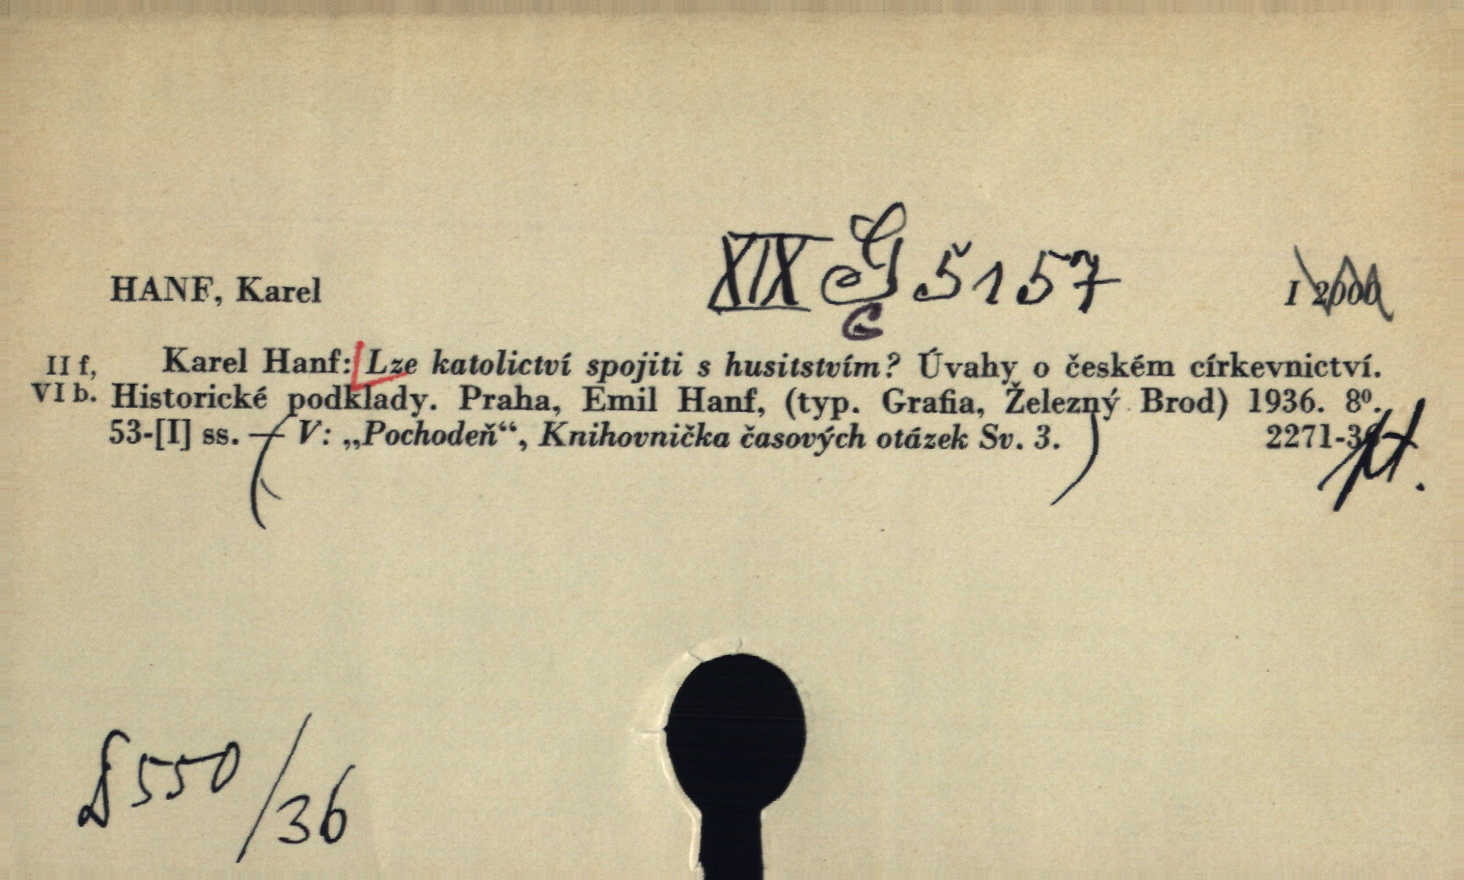 HANF, Karel XIX G 5157 I 2000
G
II f, Karel Hanf: Lze katolictví spojiti s husitstvím? Úvahy o českém církevnictví.
VI b. Historické podklady. Praha, Emil Hanf, (typ. Grafia, Železný Brod) 1936. 8⁰.
53-[I] ss. — V: „Pochodeň“, Knihovnička časových otázek Sv. 3. 2271-36
550/36